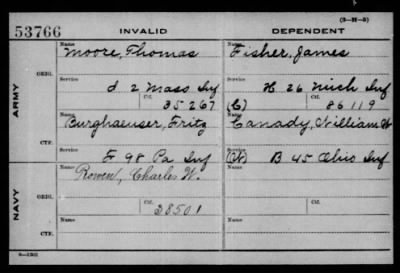 (3-31-3)
53766 INVALID DEPENDENT
Name Name
Moore, Thomas Fisher, James
ORIG.
Service Service
I 2 Mass Inf H 26 Mich Inf
Ctf. Ctf.
35267 (C) 86119
ARMY
Name Name
Burghaeuser, Fritz Canady, William H
CTF.
Service Service
F 98 Pa Inf (W) B 45 Ohio Inf
Name Name
Rowen, Charles W.
ORIG.
Ctf. Ctf.
38501
NAVY
Name Name
CTF.